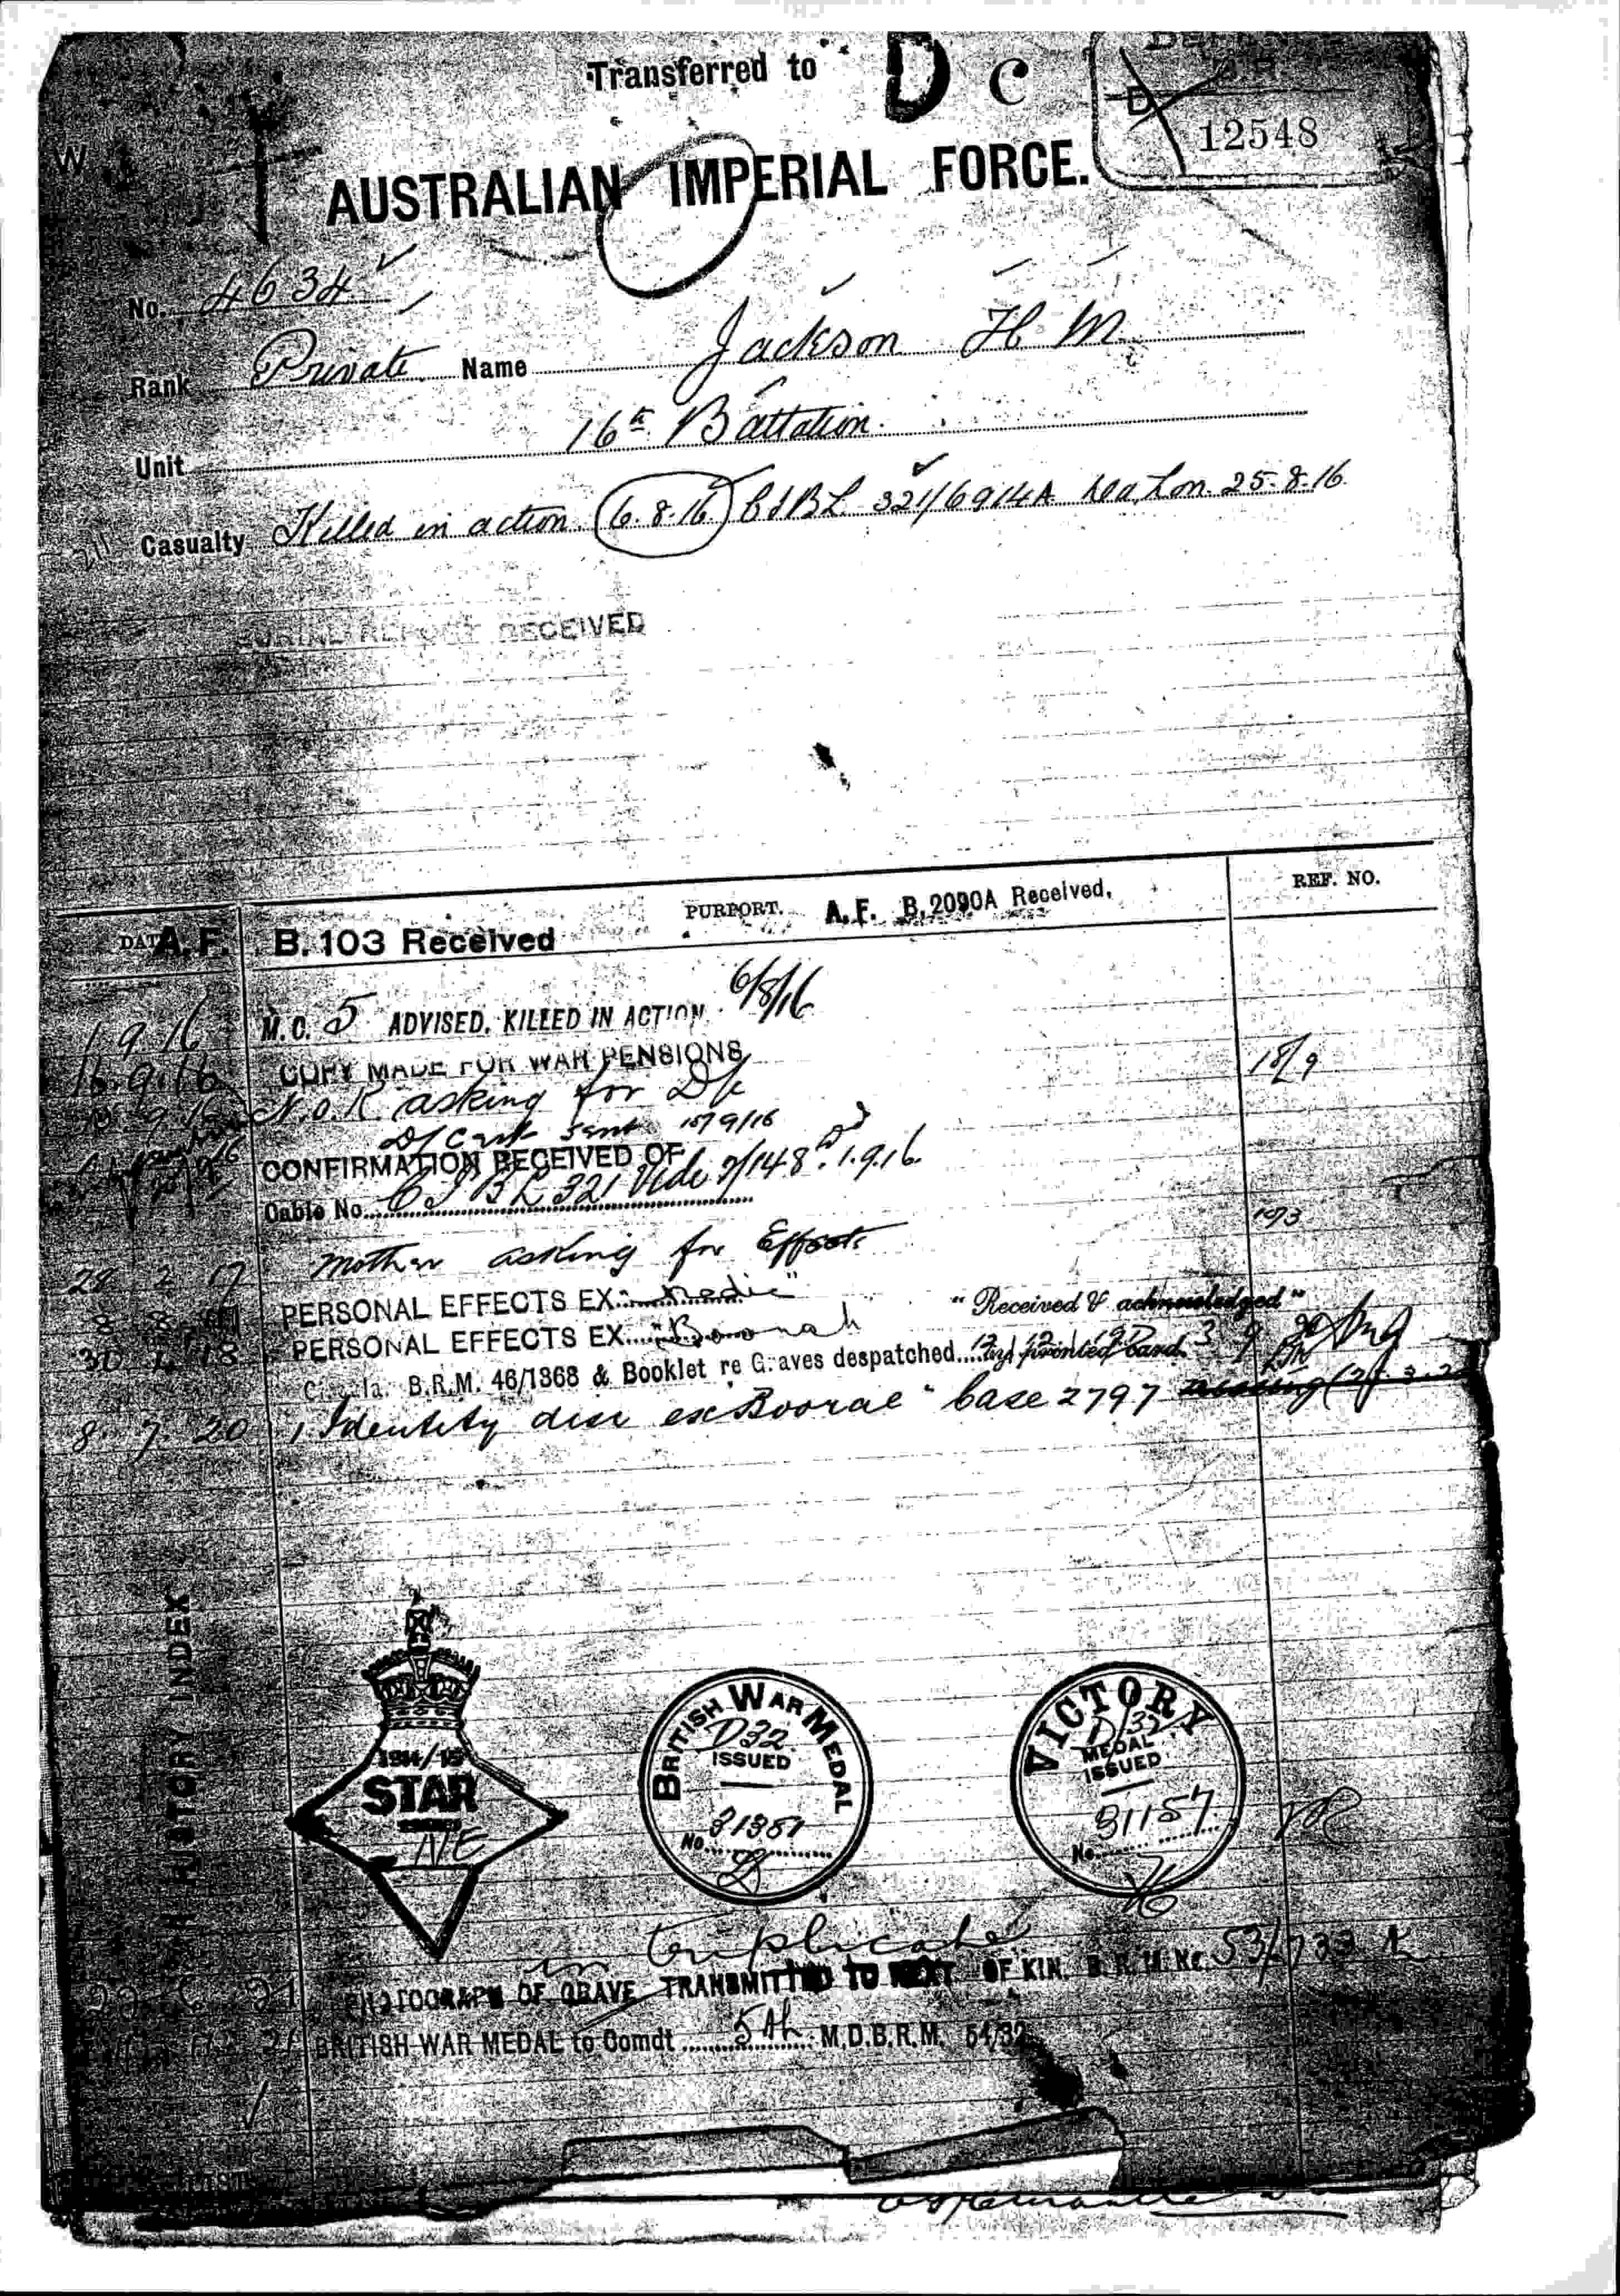 Transferred to D C
12548
AUSTRALIAN IMPERIAL FORCE.
No. 4634
Rank Private Name Jackson H M
Unit 16th Battalion
Casualty Killed in action 6.8.16 CJBL 321/6914A 25.8.16
BURIAL REPORT RECEIVED
DATE PURPORT. REF. NO.
A.F. B.103 Received A.F. B.2090A Received.
1 9 16 M.C. 5 ADVISED. KILLED IN ACTION. 6/8/16
16.9.16 COPY MADE FOR WAR PENSIONS
N.O.K asking for D/C 18/9
D/Cert sent 18/9/16
CONFIRMATION RECEIVED OF
Cable No. CJBL 321 Vide 1.9.16.
28 2 17 Mother asking for Effects 1073
8 8 PERSONAL EFFECTS EX "Medic"
30 4 18 PERSONAL EFFECTS EX "Boonah "Received & acknowledged"
Circular B.R.M. 46/1368 & Booklet re Graves despatched
8 7 20 1 Identity disc ex Boorae" base 2797
HISTORY INDEX
1914/15
STAR
N/E
BRITISH WAR MEDAL
D32
ISSUED
No. 31351
VICTORY
D/32
MEDAL
ISSUED
No. 31157
in triplicate
PHOTOGRAPH OF GRAVE TRANSMITTED TO NEXT OF KIN. B.R.M. No.
BRITISH WAR MEDAL to Comdt 5th M.D.B.R.M. 54/32